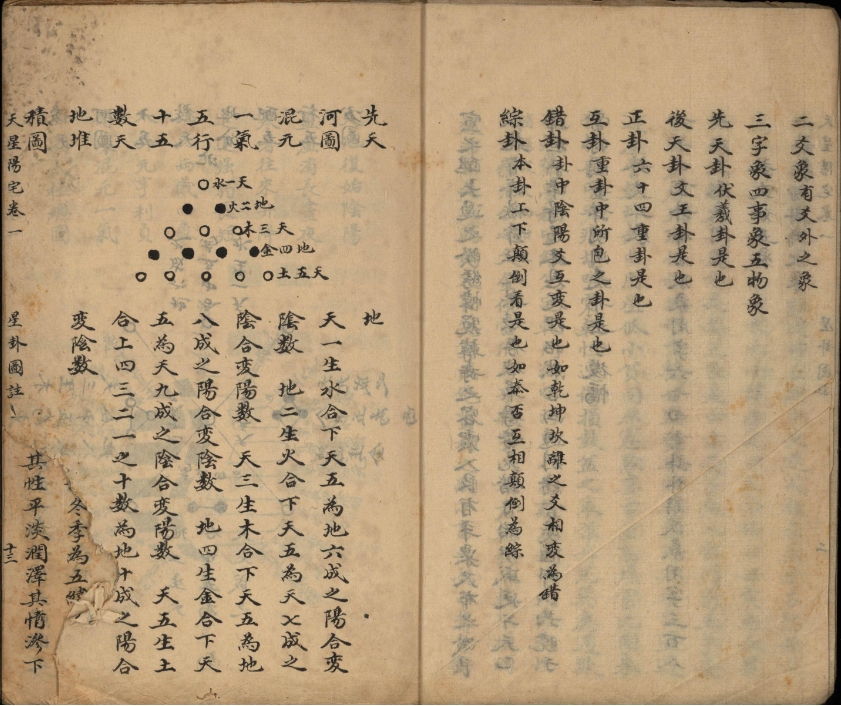 二爻象有爻外之象
三字象四事象五物象
先天卦伏羲卦是也
後天卦文王卦是也
正卦六十四重卦是也
互卦重卦中所包之卦是也
錯卦卦中陰陽爻互变是也如乾坤坎離之爻相变為錯
綜卦本卦工下顛倒看是也如泰否互相顛倒為綜
先天
河圖
混元
一氣
五行
十五
數天
地堆
積圖
水一天
火二地
木三天
金四地
土五天
地
天一生水合下天五為地六成之陽合変
陰数 地二生火合下天五為天七成之
陰合変陽数 天三生木合下天五為地
八成之陽合変陰数 地四生金合下天
五為天九成之陰合变陽数 天五生土
合上四三二一之十数為地十成之陽合
変陰数
冬季為五
其性平淡潤澤其情滲下
天星陽宅卷一
星卦圖註
十三